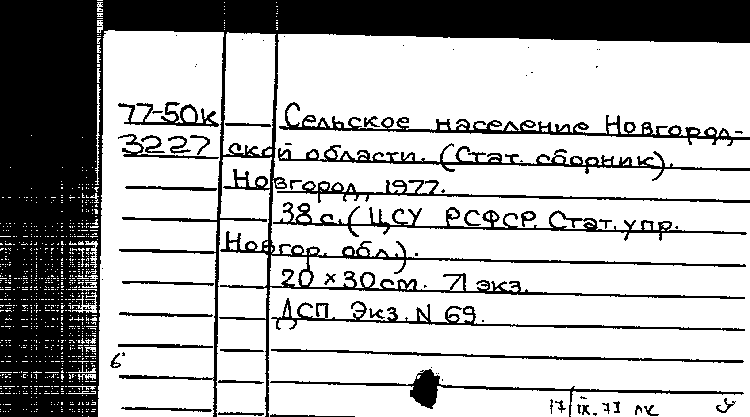 77-50к Сельское население Новгород-
3227 ской области. (Стат. сборник).
Новгород, 1977.
38 с. (ЦСУ РСФСР. Стат. упр.
Новгор. обл.).
20 × 30 см. 71 экз.
ДСП. Экз. N 69.
6
17/IX.77